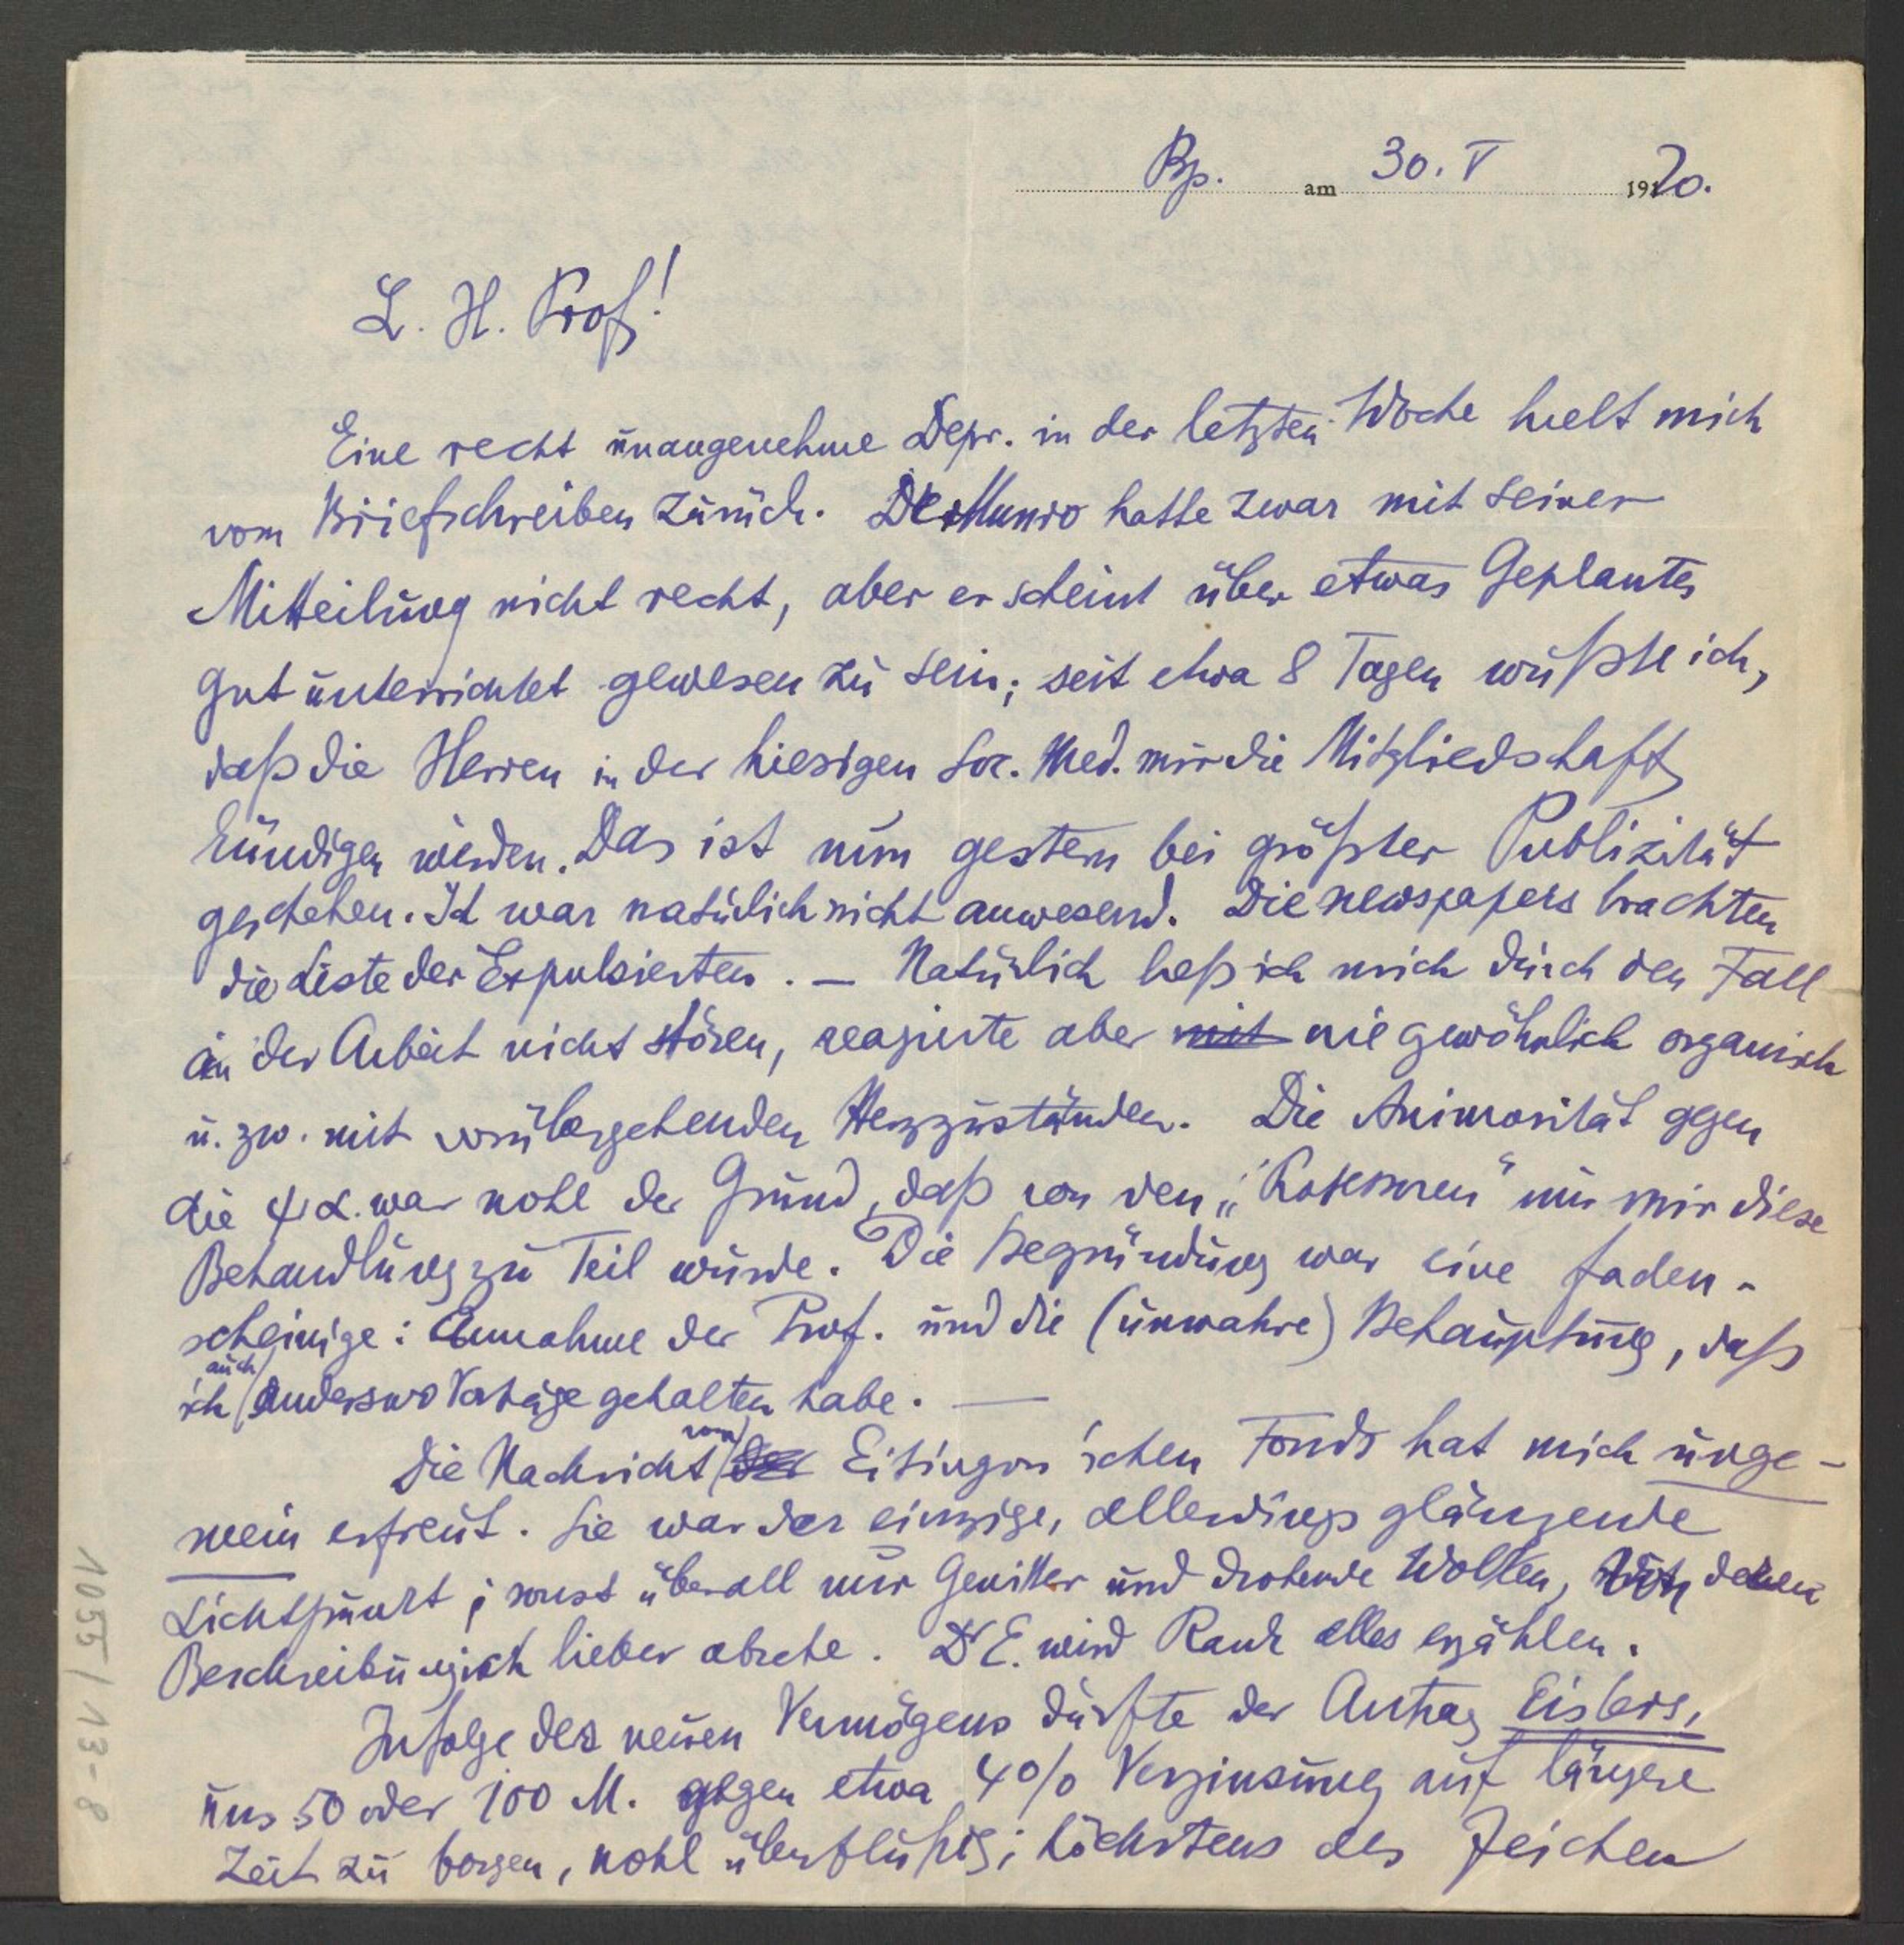 Bp. am 30. V 1920.
L. H. Prof!
Eine recht unangenehme Depr. in der letzten Woche hielt mich
vom Briefschreiben zurück. Munro hatte zwar mit seiner
Mitteilung nicht recht, aber er scheint über etwas Geplantes
gut unterrichtet gewesen zu sein; seit etwa 8 Tagen wußte ich,
daß die Herren in der hiesigen Soc. Med. mir die Mitgliedschaft
kündigen werden. Das ist nun gestern bei größter Publizität
geschehen. Ich war natürlich nicht anwesend. Die newspapers brachten
die Liste der Expulsierten. — Natürlich ließ ich mich durch den Fall
in der Arbeit nicht stören, reagierte aber mit wie gewöhnlich organisch
u. zw. mit vorübergehenden Herzzuständen. Die Animosität gegen
die ψα. war wohl der Grund, daß von den „ " nur mir diese
Behandlung zu Teil wurde. Die Begründung war eine faden-
scheinige: Annahme der Prof. und die (unwahre) Behauptung, daß
ich auch anderswo Vorträge gehalten habe. —
Die Nachricht vom der Eitingon'schen Fonds hat mich unge-
mein erfreut. Sie war der einzige, allerdings glänzende
Lichtpunkt; sonst überall nur Gewitter und drohende Wolken, von deren
Beschreibung ich lieber absehe. Dr E. wird Rank alles erzählen.
Infolge des neuen Vermögens dürfte der Antrag Eislers,
uns 50 oder 100 M. gegen etwa 4% Verzinsung auf längere
Zeit zu borgen, wohl überflüßig; höchstens des Zeichen
1055/13-8